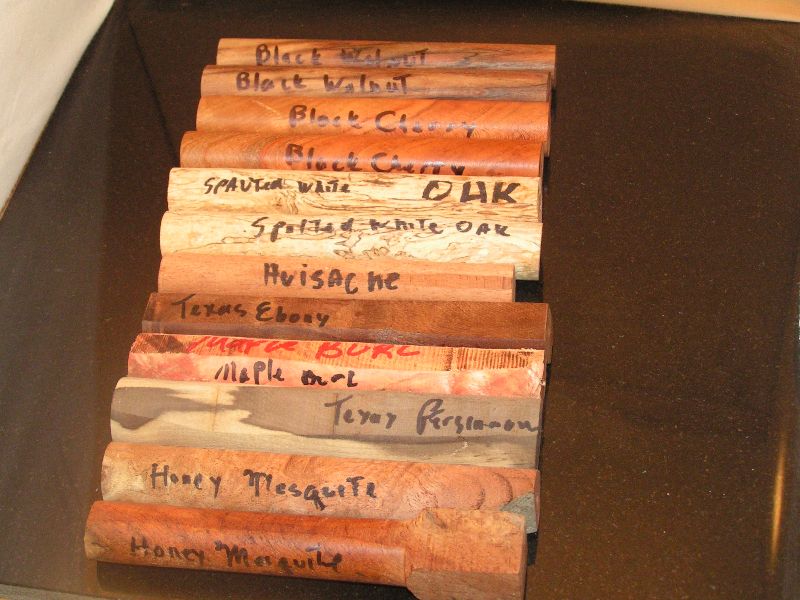 Black Walnut
Black Walnut
Black Cherry
Black Cherry
SPAUTed White OAK
Spolted White OAK
HuisAcHe
Texas Ebony
MAPLE BURL
MAPle Burl
Texas Persimmon
Honey MesquiTe
Honey Mesquite